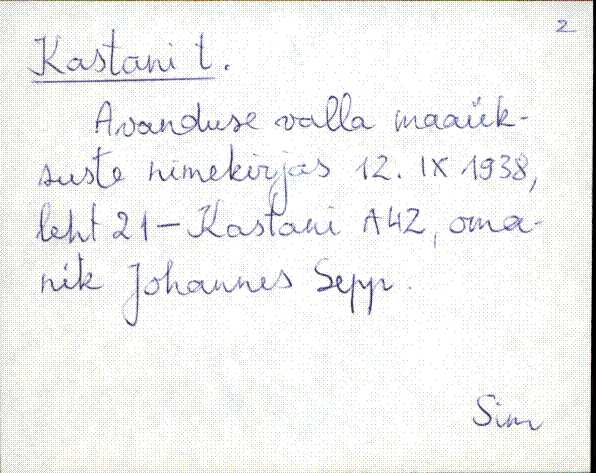 2
Kastani t.
Avanduse valla maaük-
suste nimekirjas 12. IX 1938,
leht 21 – Kastani A42, oma-
nik Johannes Sepp.
Sim